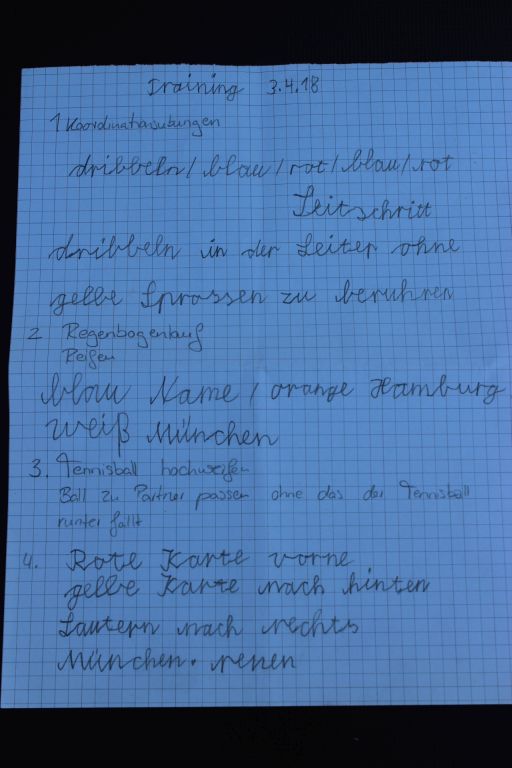 Training 3.4.18
1 Koordinationsübungen
dribbeln / blau / rot / blau / rot
Seitschritt
dribbeln in der Leiter ohne
gelbe Sprossen zu berühren
2 Regenbogenlauf
Reifen
blau Name / orange Hamburg
weiß München
3. Tennisball hochwerfen
Ball zu Partner passen ohne das der Tennisball
runter fällt
4. Rote Karte vorne
gelbe Karte nach hinten
Lautern nach rechts
München. renen